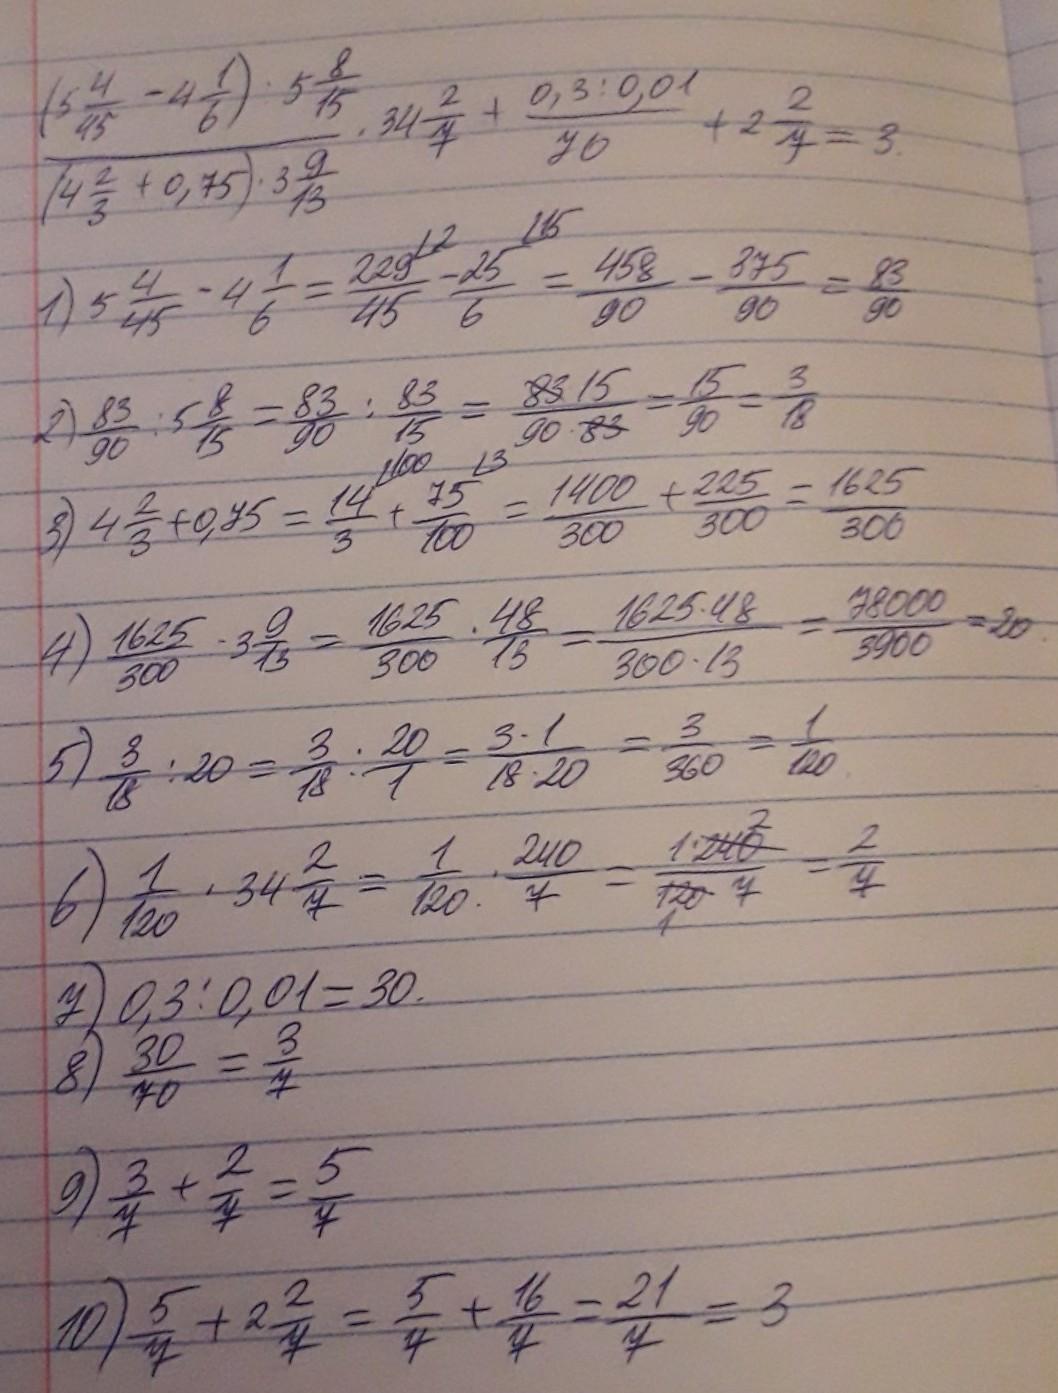 (5 4/45 - 4 1/6) : 5 8/15 / (4 2/3 + 0,75) · 3 9/13 · 34 2/7 + 0,3 : 0,01 / 70 + 2 2/7 = 3.
1) 5 4/45 - 4 1/6 = 229/45 - 25/6 = 458/90 - 375/90 = 83/90
2) 83/90 : 5 8/15 = 83/90 : 83/15 = 83·15/90·83 = 15/90 = 3/18
3) 4 2/3 + 0,75 = 14/3 + 75/100 = 1400/300 + 225/300 = 1625/300
4) 1625/300 · 3 9/13 = 1625/300 · 48/13 = 1625·48/300·13 = 78000/3900 = 20.
5) 3/18 : 20 = 3/18 : 20/1 = 3·1/18·20 = 3/360 = 1/120.
6) 1/120 · 34 2/7 = 1/120 · 240/7 = 1·240/120 7 = 2/7
7) 0,3 : 0,01 = 30.
8) 30/70 = 3/7
9) 3/7 + 2/7 = 5/7
10) 5/7 + 2 2/7 = 5/7 + 16/7 = 21/7 = 3